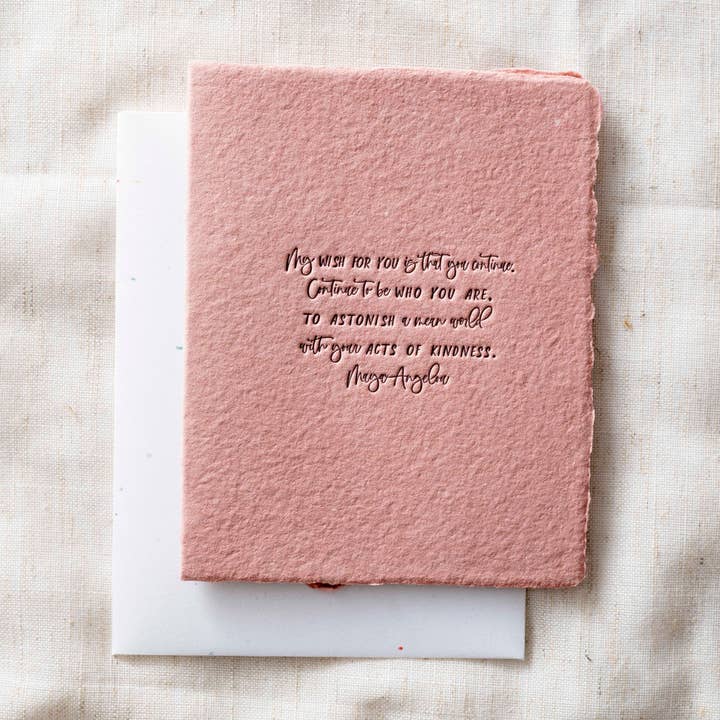 My WISH FOR YOU is that you continue.
Continue to be WHO YOU ARE.
TO ASTONISH a mean world
with your ACTS OF KINDNESS.
Maya Angelou